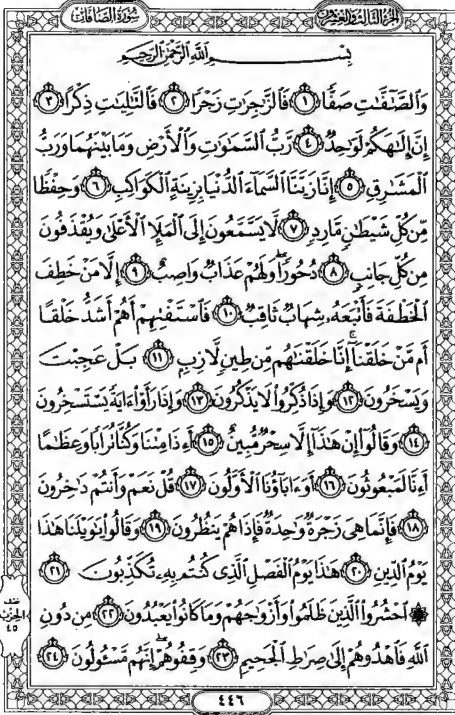 الجزء الثالث والعشرون
سورة الصافات
بِسْمِ اللَّهِ الرَّحْمَٰنِ الرَّحِيمِ
وَالصَّٰٓفَّٰتِ صَفًّا ١ فَالزَّٰجِرَٰتِ زَجْرًا ٢ فَالتَّٰلِيَٰتِ ذِكْرًا ٣
إِنَّ إِلَٰهَكُمْ لَوَٰحِدٌ ٤ رَّبُّ السَّمَٰوَٰتِ وَالْأَرْضِ وَمَا بَيْنَهُمَا وَرَبُّ
الْمَشَٰرِقِ ٥ إِنَّا زَيَّنَّا السَّمَآءَ الدُّنْيَا بِزِينَةٍ الْكَوَاكِبِ ٦ وَحِفْظًا
مِّن كُلِّ شَيْطَٰنٍ مَّارِدٍ ٧ لَّا يَسَّمَّعُونَ إِلَى الْمَلَإِ الْأَعْلَىٰ وَيُقْذَفُونَ
مِن كُلِّ جَانِبٍ ٨ دُحُورًا وَلَهُمْ عَذَابٌ وَاصِبٌ ٩ إِلَّا مَنْ خَطِفَ
الْخَطْفَةَ فَأَتْبَعَهُۥ شِهَابٌ ثَاقِبٌ ١٠ فَاسْتَفْتِهِمْ أَهُمْ أَشَدُّ خَلْقًا
أَم مَّنْ خَلَقْنَآ إِنَّا خَلَقْنَٰهُم مِّن طِينٍ لَّازِبٍ ١١ بَلْ عَجِبْتَ
وَيَسْخَرُونَ ١٢ وَإِذَا ذُكِّرُوا لَا يَذْكُرُونَ ١٣ وَإِذَا رَأَوْا ءَايَةً يَسْتَسْخِرُونَ
١٤ وَقَالُوٓا إِنْ هَٰذَآ إِلَّا سِحْرٌ مُّبِينٌ ١٥ أَءِذَا مِتْنَا وَكُنَّا تُرَابًا وَعِظَٰمًا
أَءِنَّا لَمَبْعُوثُونَ ١٦ أَوَءَابَآؤُنَا الْأَوَّلُونَ ١٧ قُلْ نَعَمْ وَأَنتُمْ دَٰخِرُونَ
١٨ فَإِنَّمَا هِيَ زَجْرَةٌ وَٰحِدَةٌ فَإِذَا هُمْ يَنظُرُونَ ١٩ وَقَالُوا يَٰوَيْلَنَا هَٰذَا
يَوْمُ الدِّينِ ٢٠ هَٰذَا يَوْمُ الْفَصْلِ الَّذِي كُنتُم بِهِۦ تُكَذِّبُونَ ٢١
۞ احْشُرُوا الَّذِينَ ظَلَمُوا وَأَزْوَٰجَهُمْ وَمَا كَانُوا يَعْبُدُونَ ٢٢ مِن دُونِ
اللَّهِ فَاهْدُوهُمْ إِلَىٰ صِرَٰطِ الْجَحِيمِ ٢٣ وَقِفُوهُمْ إِنَّهُم مَّسْـُٔولُونَ ٢٤
الحزب
٤٥
٤٤٦